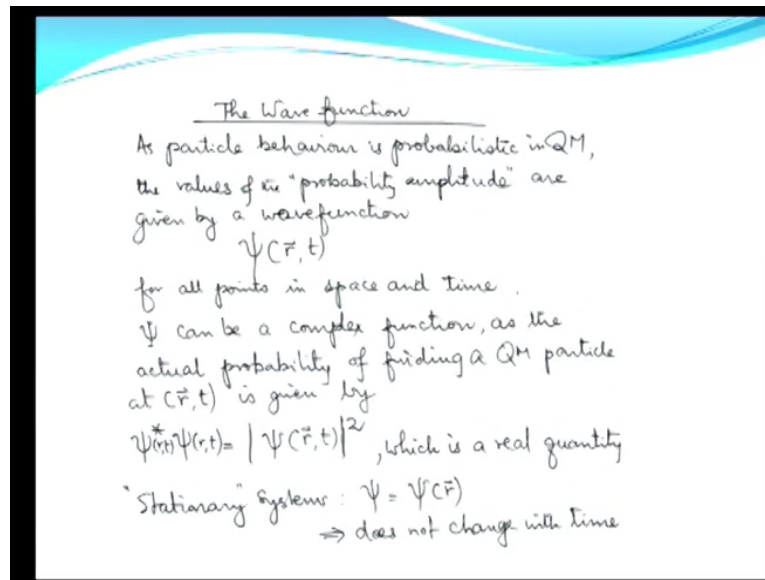 The Wave function
As particle behaviour is probabilistic in QM,
the values of the "probability amplitude" are
given by a wavefunction
Ψ(r⃗, t)
for all points in space and time.
Ψ can be a complex function, as the
actual probability of finding a QM particle
at (r⃗, t) is given by
Ψ*(r,t)Ψ(r,t) = |Ψ(r⃗, t)|², which is a real quantity
"Stationary" Systems : Ψ = Ψ(r⃗)
⇒ does not change with time